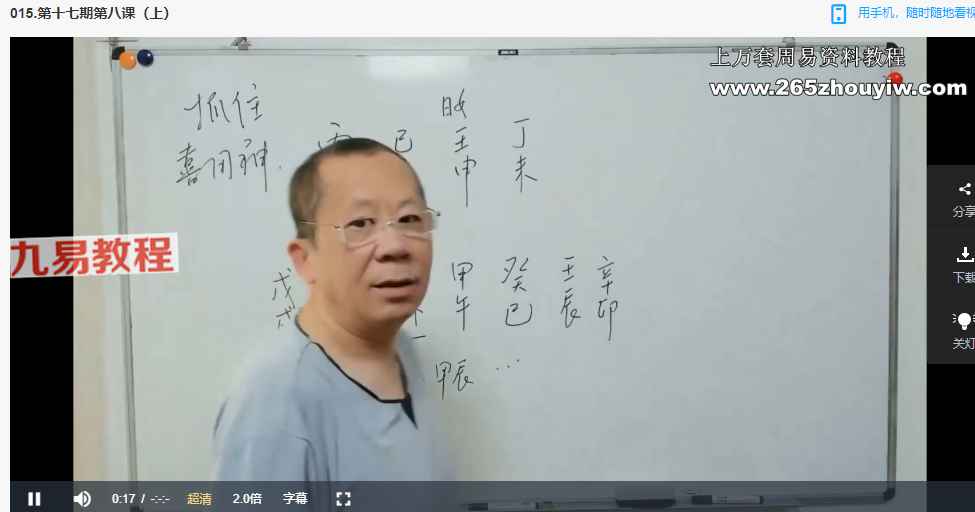 015.第十七期第八课（上）
用手机，随时随地看视
上万套周易资料教程
www.265zhouyiw.com
抓住
喜用神
壬 丁
申 未
九易教程
分享
下载
关灯
戊 甲 癸 壬 辛
戌 午 巳 辰 卯
甲辰 …
0:17 / -:-:-
超清
2.0倍
字幕